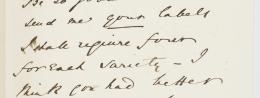 send me your labels
I shall require four
for each variety – I
think you had better